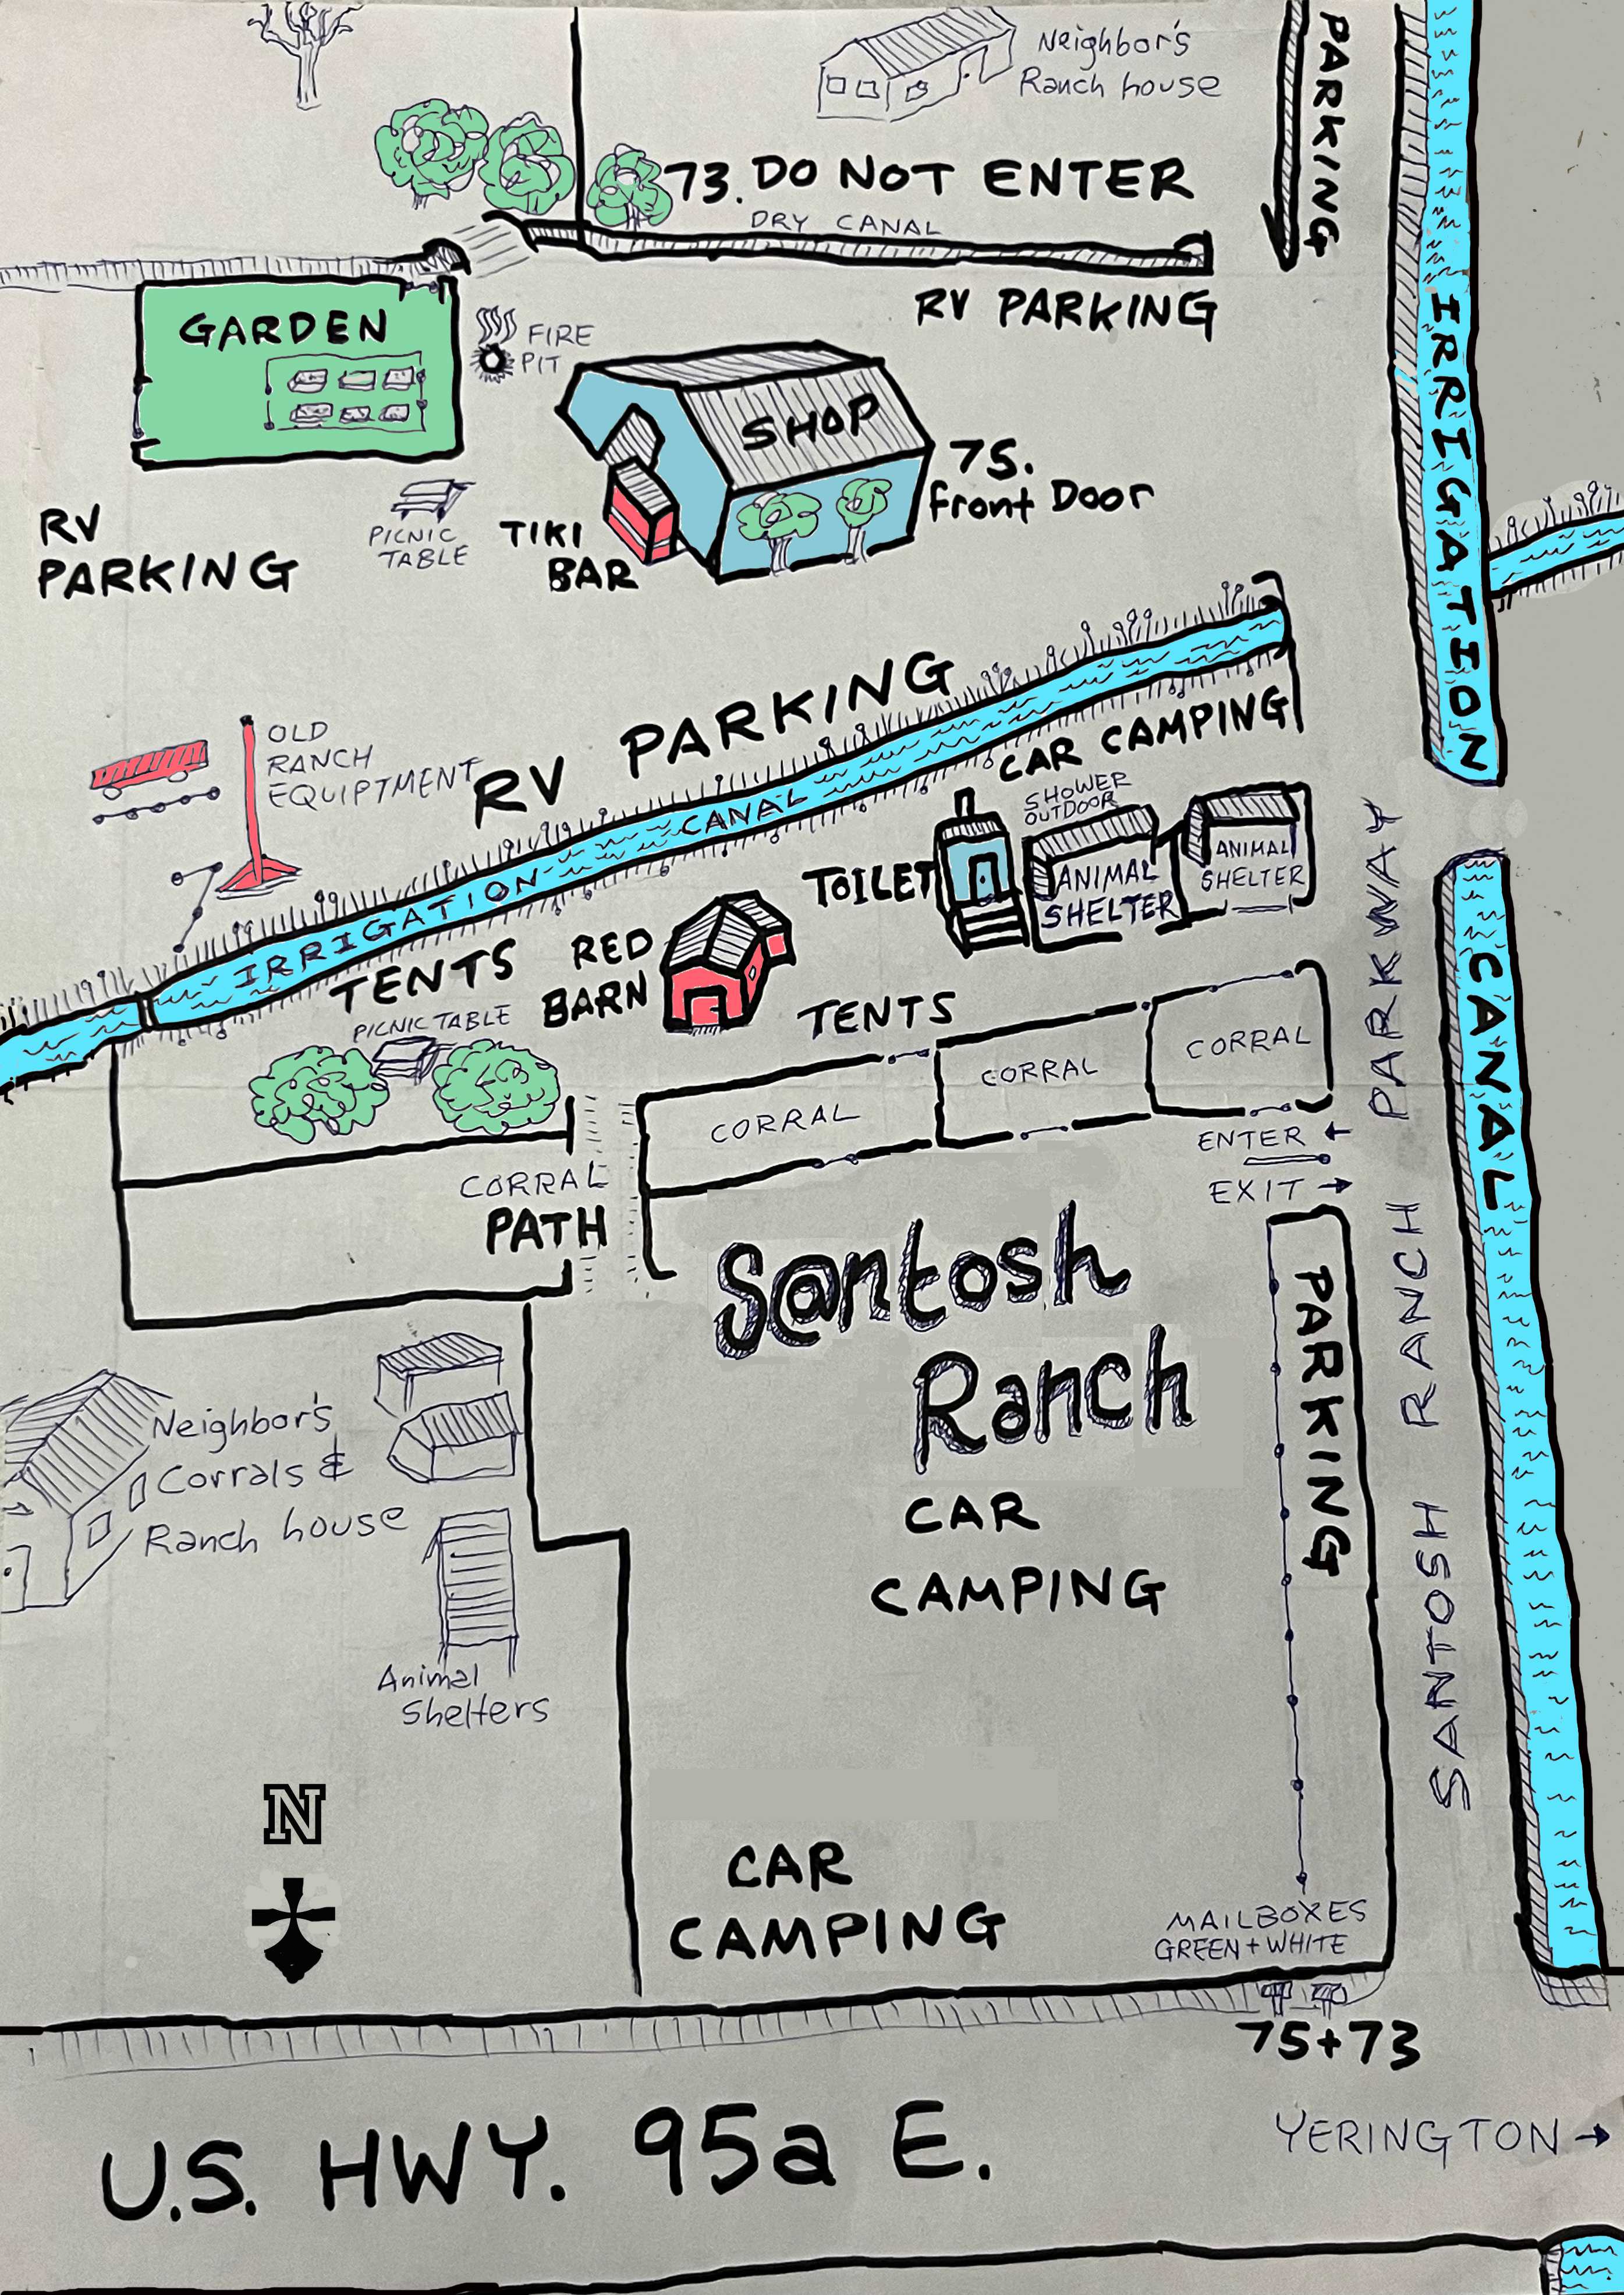 PARKING
Neighbor's
Ranch house
73. DO NOT ENTER
DRY CANAL
RV PARKING
GARDEN
FIRE
PIT
SHOP
75.
Front Door
RV
PARKING
PICNIC
TABLE
TIKI
BAR
IRRIGATION
CANAL
OLD
RANCH
EQUIPTMENT
RV PARKING
CAR CAMPING
IRRIGATION CANAL
SHOWER
OUTDOOR
TOILET
ANIMAL
SHELTER
ANIMAL
SHELTER
TENTS
RED
BARN
TENTS
PICNIC TABLE
CORRAL
CORRAL
CORRAL
ENTER ←
EXIT →
CORRAL
PATH
S@ntosh
Ranch
PARKING
SANTOSH RANCH PARKWAY
Neighbor's
Corrals &
Ranch house
Animal
Shelters
CAR
CAMPING
N
CAR
CAMPING
MAILBOXES
GREEN + WHITE
75+73
U.S. HWY. 95a E.
YERINGTON →